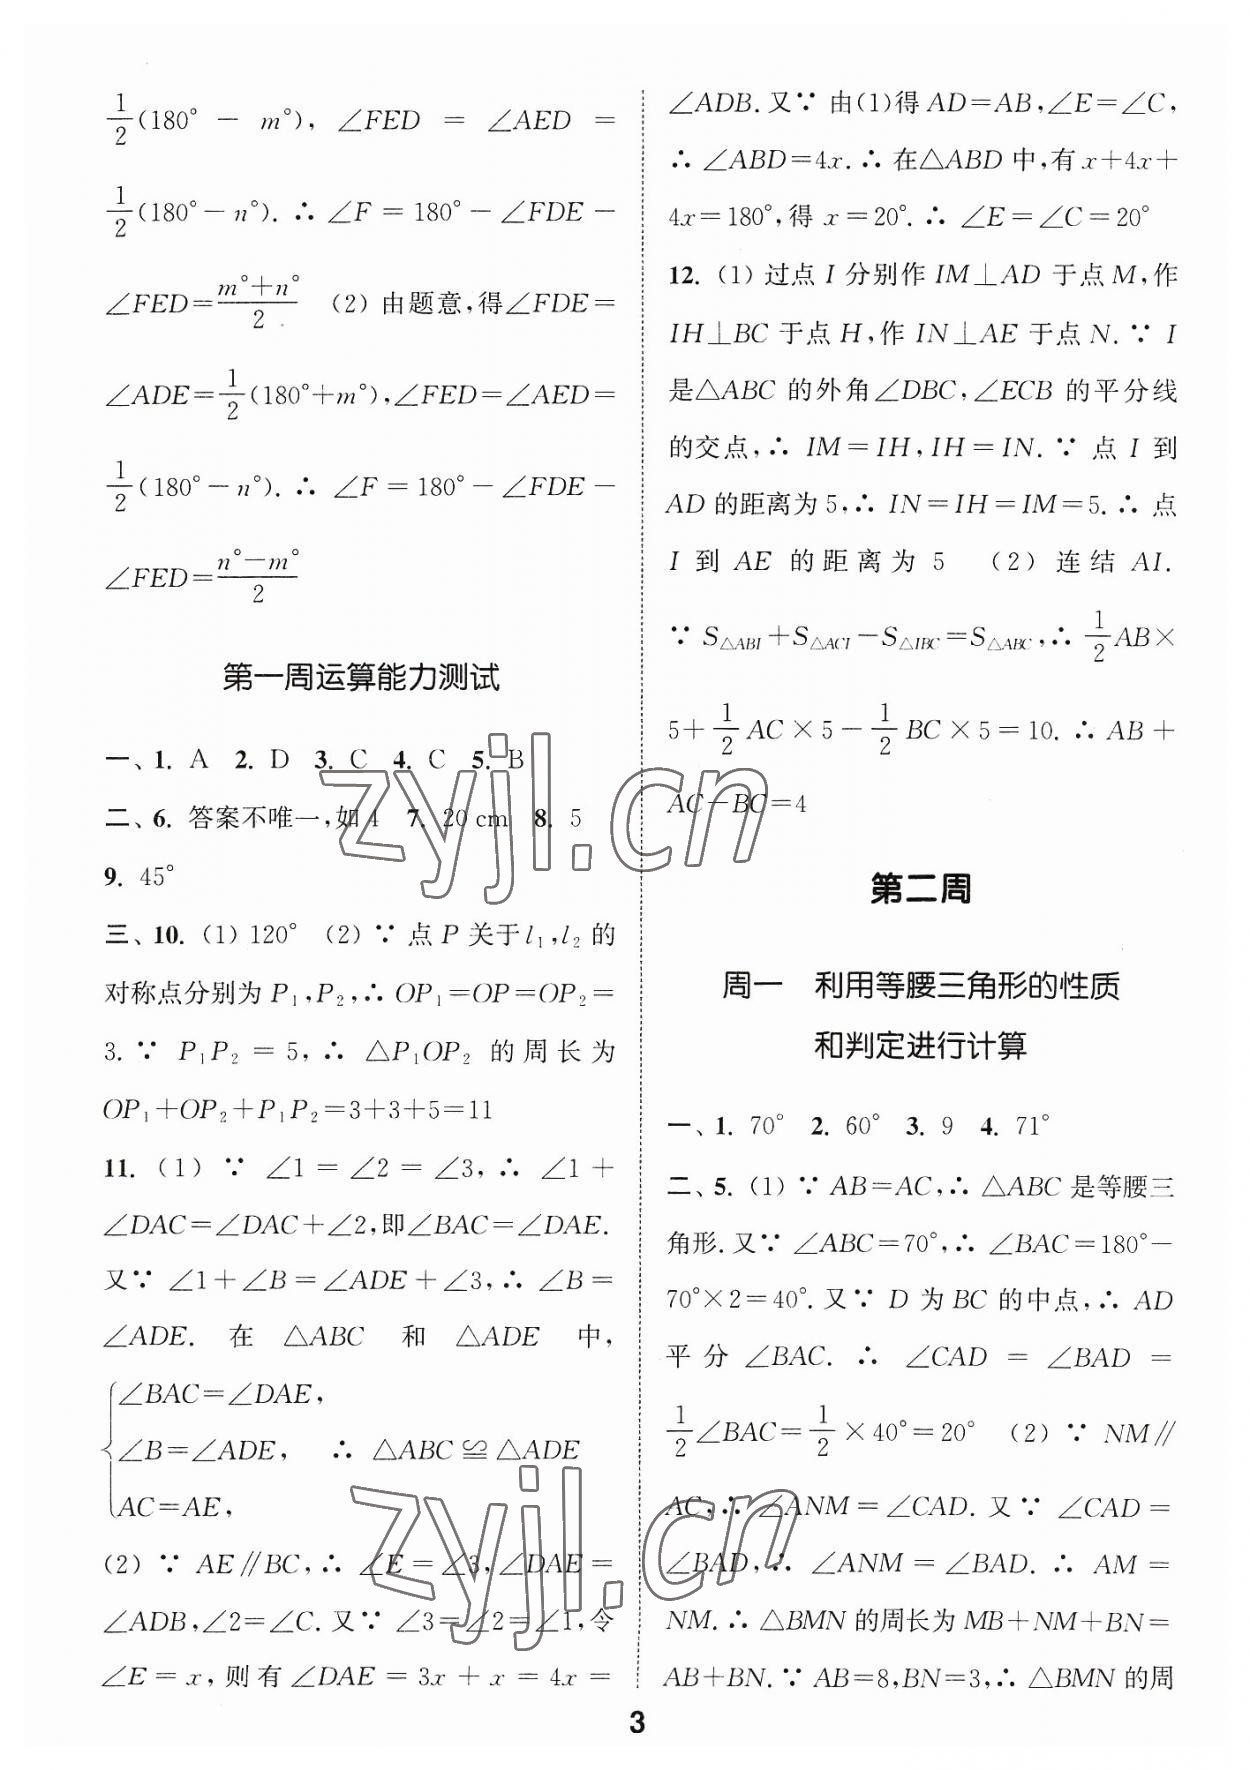 1/2(180°－m°), ∠FED＝∠AED＝
1/2(180°－n°). ∴ ∠F＝180°－∠FDE－
∠FED＝(m°＋n°)/2 (2) 由题意,得∠FDE＝
∠ADE＝1/2(180°＋m°),∠FED＝∠AED＝
1/2(180°－n°). ∴ ∠F＝180°－∠FDE－
∠FED＝(n°－m°)/2
第一周运算能力测试
一、1. A 2. D 3. C 4. C 5. B
二、6. 答案不唯一,如 4 7. 20 cm 8. 5
9. 45°
三、10. (1) 120° (2) ∵ 点 P 关于 l₁,l₂ 的
对称点分别为 P₁,P₂,∴ OP₁＝OP＝OP₂＝
3. ∵ P₁P₂＝5,∴ △P₁OP₂ 的周长为
OP₁＋OP₂＋P₁P₂＝3＋3＋5＝11
11. (1) ∵ ∠1＝∠2＝∠3,∴ ∠1＋
∠DAC＝∠DAC＋∠2,即∠BAC＝∠DAE.
又∵ ∠1＋∠B＝∠ADE＋∠3,∴ ∠B＝
∠ADE. 在 △ABC 和 △ADE 中,
∠BAC＝∠DAE,
∠B＝∠ADE, ∴ △ABC≌△ADE
AC＝AE,
(2) ∵ AE∥BC,∴ ∠E＝∠3,∠DAE＝
∠ADB,∠2＝∠C. 又∵ ∠3＝∠2＝∠1,令
∠E＝x,则有∠DAE＝3x＋x＝4x＝
∠ADB. 又∵ 由(1)得 AD＝AB,∠E＝∠C,
∴ ∠ABD＝4x. ∴ 在△ABD 中,有 x＋4x＋
4x＝180°,得 x＝20°. ∴ ∠E＝∠C＝20°
12. (1) 过点 I 分别作 IM⊥AD 于点 M,作
IH⊥BC 于点 H,作 IN⊥AE 于点 N. ∵ I
是△ABC 的外角∠DBC,∠ECB 的平分线
的交点,∴ IM＝IH,IH＝IN. ∵ 点 I 到
AD 的距离为 5,∴ IN＝IH＝IM＝5. ∴ 点
I 到 AE 的距离为 5 (2) 连结 AI.
∵ S△ABI＋S△ACI－S△IBC＝S△ABC,∴ 1/2AB×
5＋1/2AC×5－1/2BC×5＝10. ∴ AB＋
AC－BC＝4
第二周
周一 利用等腰三角形的性质
和判定进行计算
一、1. 70° 2. 60° 3. 9 4. 71°
二、5. (1) ∵ AB＝AC,∴ △ABC 是等腰三
角形. 又∵ ∠ABC＝70°,∴ ∠BAC＝180°－
70°×2＝40°. 又∵ D 为 BC 的中点,∴ AD
平分∠BAC. ∴ ∠CAD＝∠BAD＝
1/2∠BAC＝1/2×40°＝20° (2) ∵ NM∥
AC,∴ ∠ANM＝∠CAD. 又∵ ∠CAD＝
∠BAD,∴ ∠ANM＝∠BAD. ∴ AM＝
NM. ∴ △BMN 的周长为 MB＋NM＋BN＝
AB＋BN. ∵ AB＝8,BN＝3,∴ △BMN 的周
3
zyjl.cn
zyjl.cn